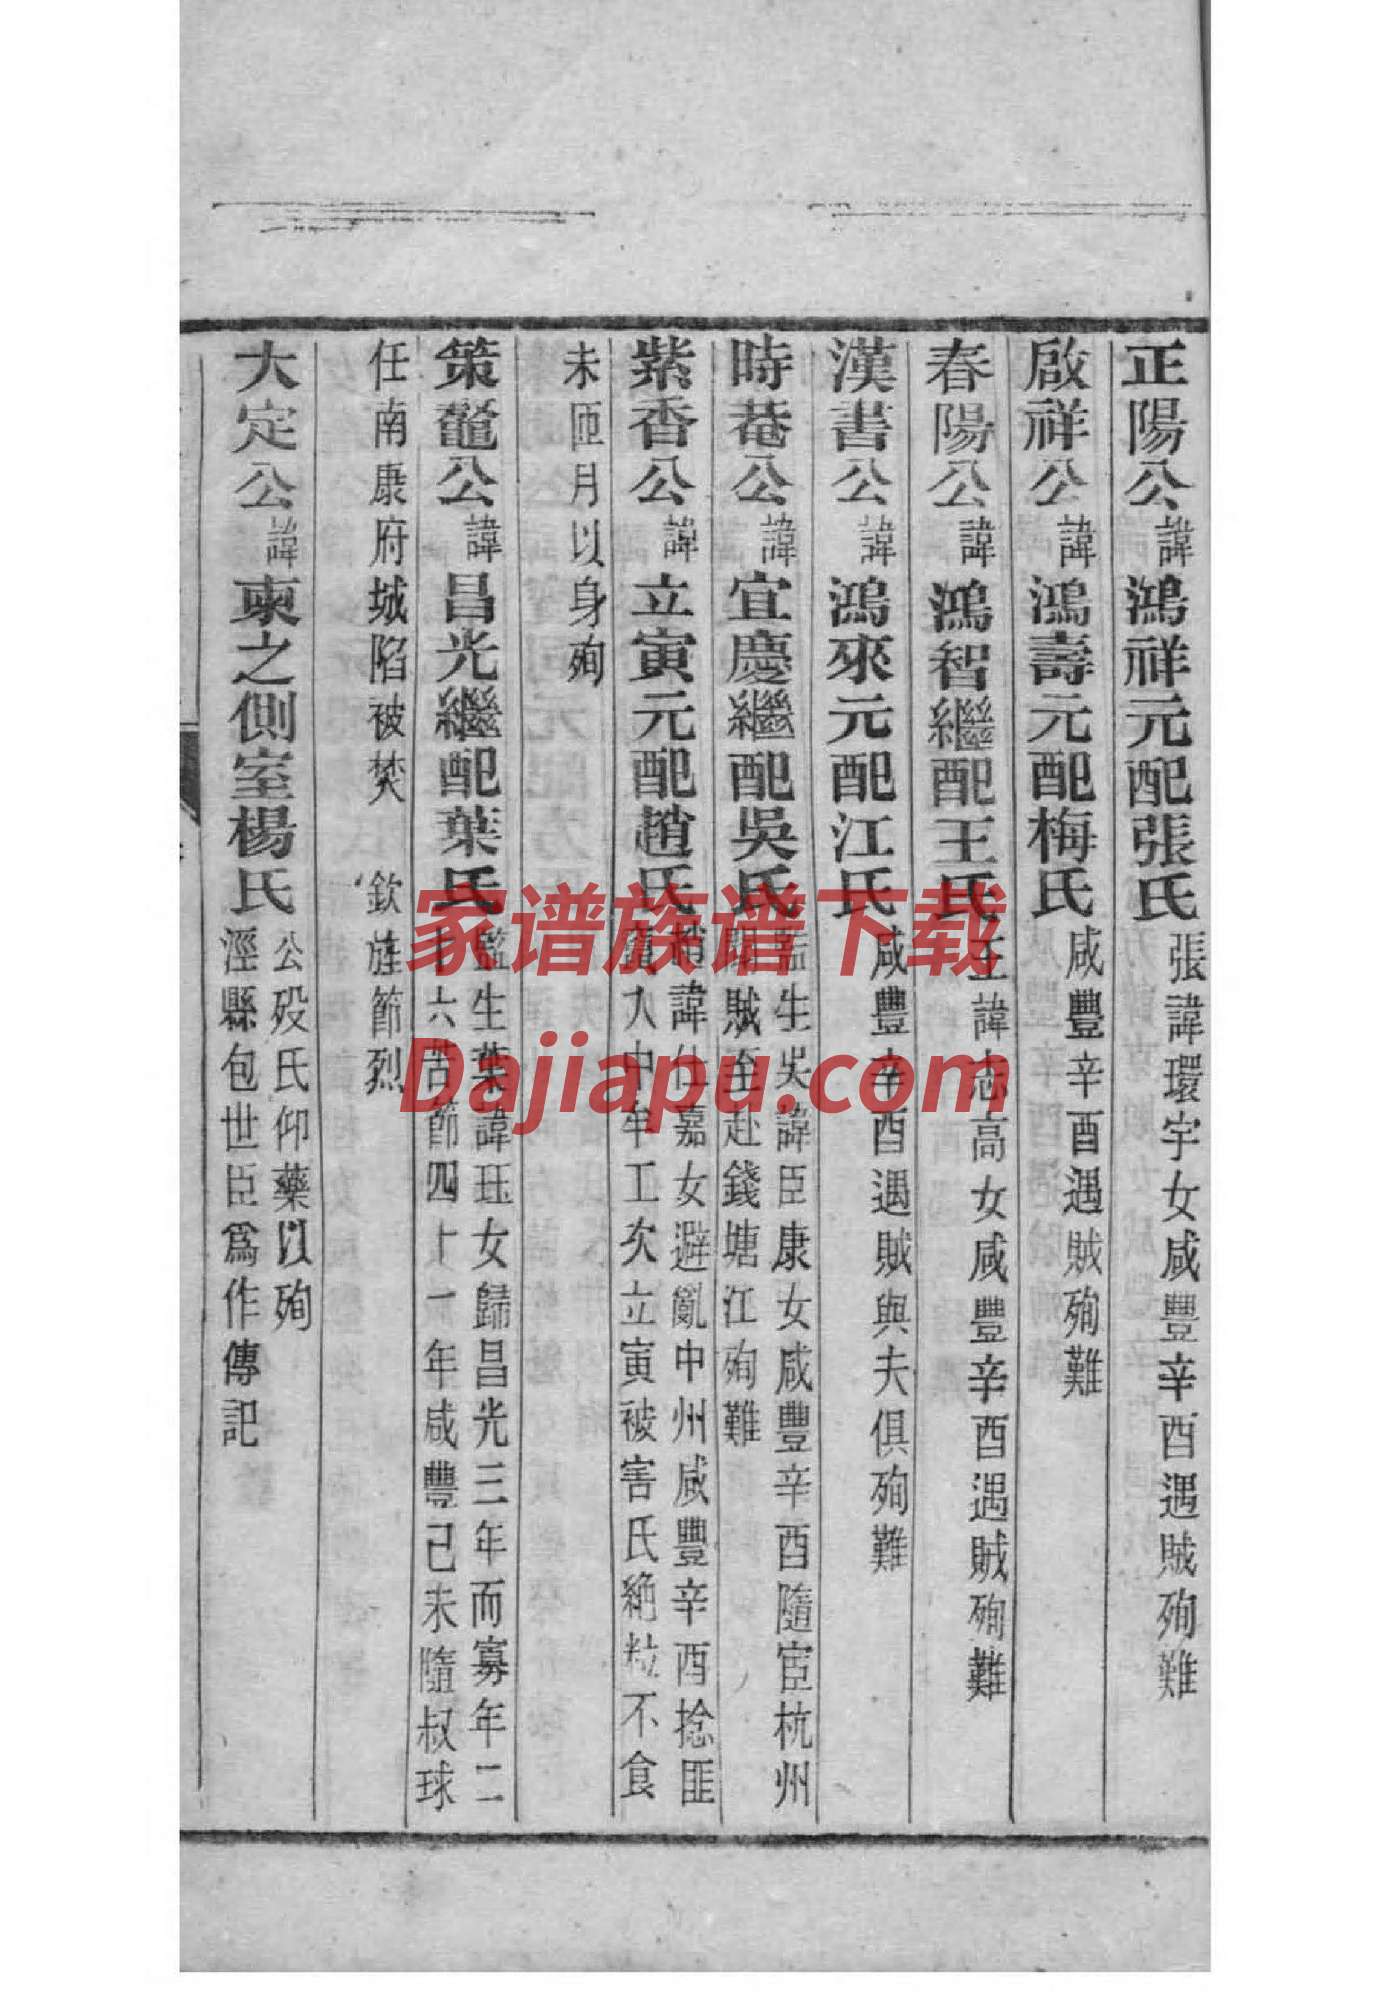 正陽公諱鴻祥元配張氏張諱環宇女咸豐辛酉遇賊殉難
啟祥公諱鴻壽元配梅氏咸豐辛酉遇賊殉難
春陽公諱鴻智繼配王氏王諱志高女咸豐辛酉遇賊殉難
漢書公諱鴻來元配江氏咸豐辛酉遇賊與夫俱殉難
時菴公諱宜慶繼配吳氏
監生吳諱臣康女咸豐辛酉隨宦杭州
聞賊至赴錢塘江殉難
紫香公諱立寅元配趙氏
趙諱仕嘉女避亂中州咸豐辛酉捻匪
竄入中牟工次立寅被害氏絶粒不食
未匝月以身殉
策鼇公諱昌光繼配葉氏
監生葉諱珏女歸昌光三年而寡年二
十六苦節四十一年咸豐己未隨叔球
任南康府城陷被焚 欽旌節烈
大定公諱柬之側室楊氏
公歿氏仰藥以殉
涇縣包世臣爲作傳記
家谱族谱下载
Dajiapu.com